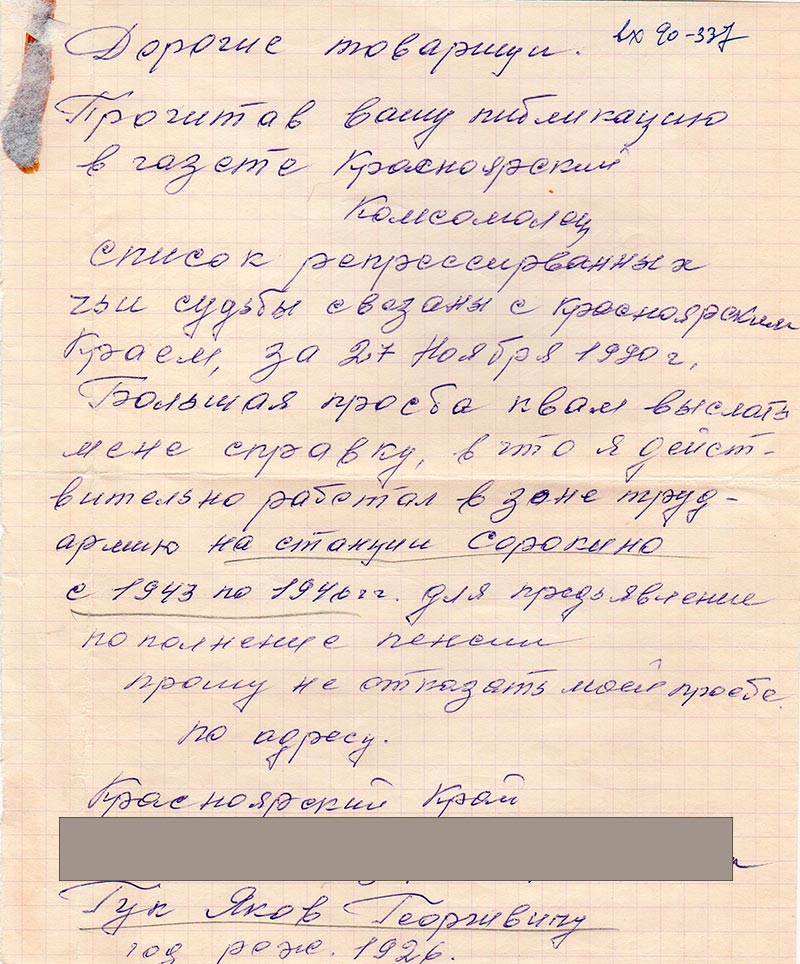 вх 90-337
Дорогие товарищи.
Прочитав вашу публикацию
в газете Красноярский
Комсомолец
список репрессированных
чьи судьбы свезаны с Красноярским
Краем, за 27 Ноября 1990 г.
Большая просба к вам выслать
мене справку, в что я дейст-
вительно работал в зоне труд-
армию на станции Сорокино
с 1943 по 1946 гг. для предъявление
пополнение пенсии
прошу не отказать моей просбе.
по адресу.
Красноярский Край
Гук Яков Георгивичу
год рож. 1926.